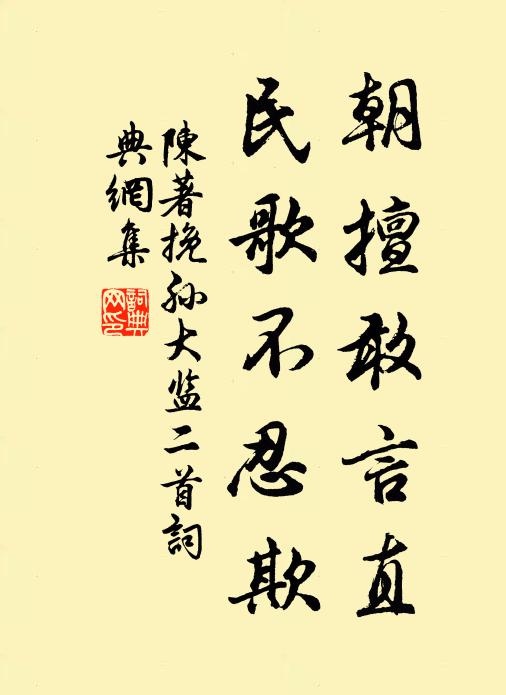 朝擅敢言直
民歌不忍欺
陳著挽孙大监二首詞
典網集
詞典
网印